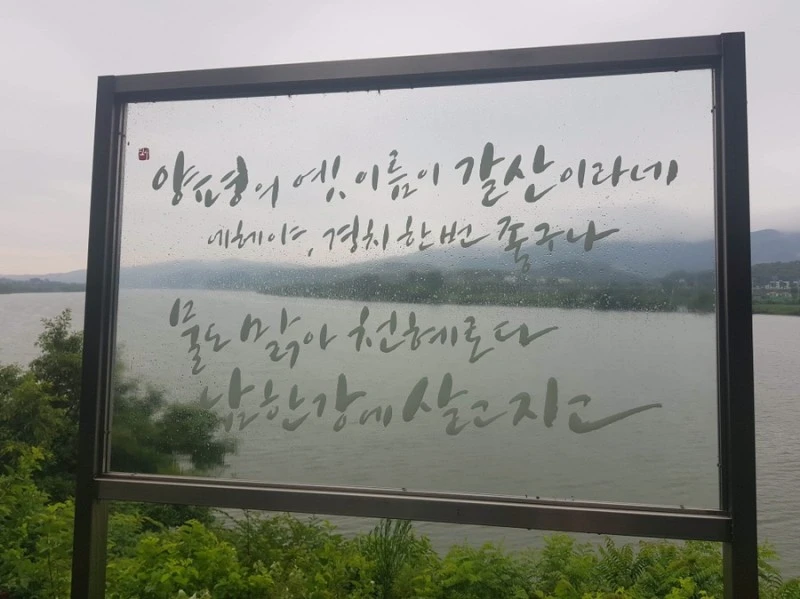 양평의 옛 이름이 갈산이라네
에헤야, 경치 한번 좋구나
물도 맑아 천혜로다
남한강에 살고지고